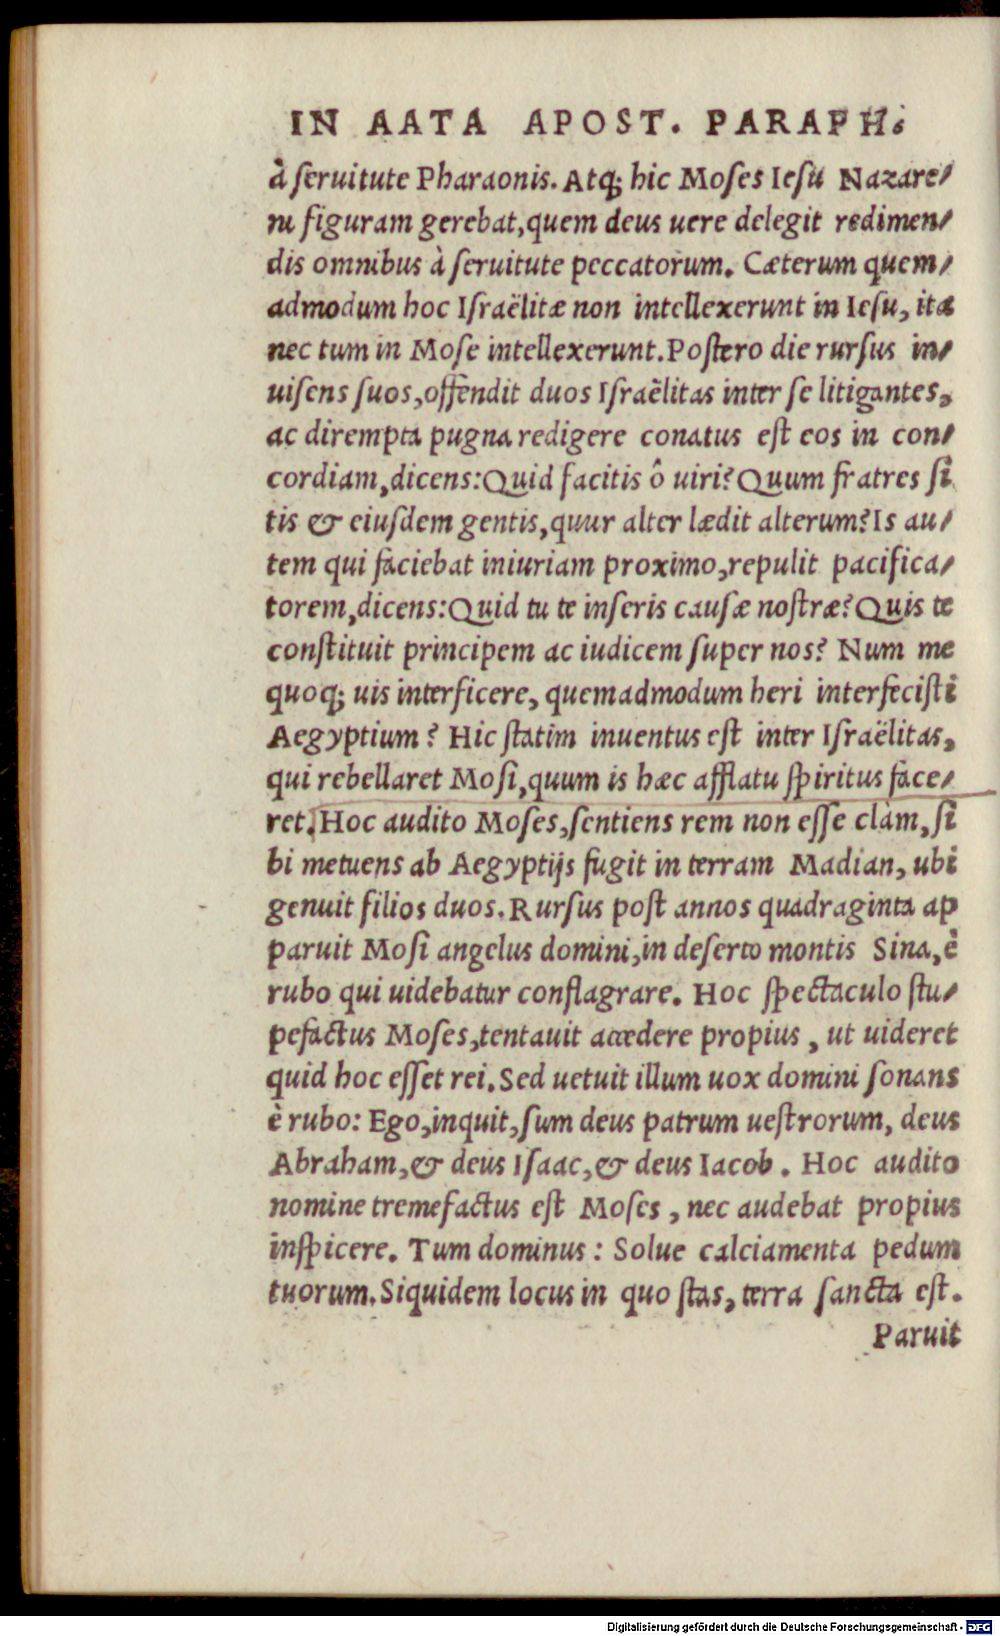 IN AATA APOST. PARAPH.
à ſeruitute Pharaonis. Atq; hic Moſes Ieſu Nazare/
ni figuram gerebat, quem deus uere delegit redimen/
dis omnibus à ſeruitute peccatorum. Cæterum quem/
admodum hoc Iſraëlitæ non intellexerunt in Ieſu, ita
nec tum in Moſe intellexerunt. Poſtero die rurſus in/
uiſens ſuos, offendit duos Iſraëlitas inter ſe litigantes,
ac dirempta pugna redigere conatus eſt eos in con/
cordiam, dicens: Quid facitis ô uiri? Quum fratres ſi
tis & eiuſdem gentis, quur alter lædit alterum? Is au/
tem qui faciebat iniuriam proximo, repulit pacifica/
torem, dicens: Quid tu te inſeris cauſæ noſtræ? Quis te
conſtituit principem ac iudicem ſuper nos? Num me
quoq; uis interficere, quemadmodum heri interfeciſti
Aegyptium? Hic ſtatim inuentus eſt inter Iſraëlitas,
qui rebellaret Moſi, quum is hæc afflatu ſpiritus face/
ret. Hoc audito Moſes, ſentiens rem non eſſe clàm, ſi
bi metuens ab Aegyptijs fugit in terram Madian, ubi
genuit filios duos. Rurſus poſt annos quadraginta ap
paruit Moſi angelus domini, in deſerto montis Sina, è
rubo qui uidebatur conflagrare. Hoc ſpectaculo ſtu/
pefactus Moſes, tentauit accedere propius, ut uideret
quid hoc eſſet rei. Sed uetuit illum uox domini ſonans
è rubo: Ego, inquit, ſum deus patrum ueſtrorum, deus
Abraham, & deus Iſaac, & deus Iacob. Hoc audito
nomine tremefactus eſt Moſes, nec audebat propius
inſpicere. Tum dominus: Solue calciamenta pedum
tuorum. Siquidem locus in quo ſtas, terra ſancta eſt.
Paruit
Digitalisierung gefördert durch die Deutsche Forschungsgemeinschaft - DFG